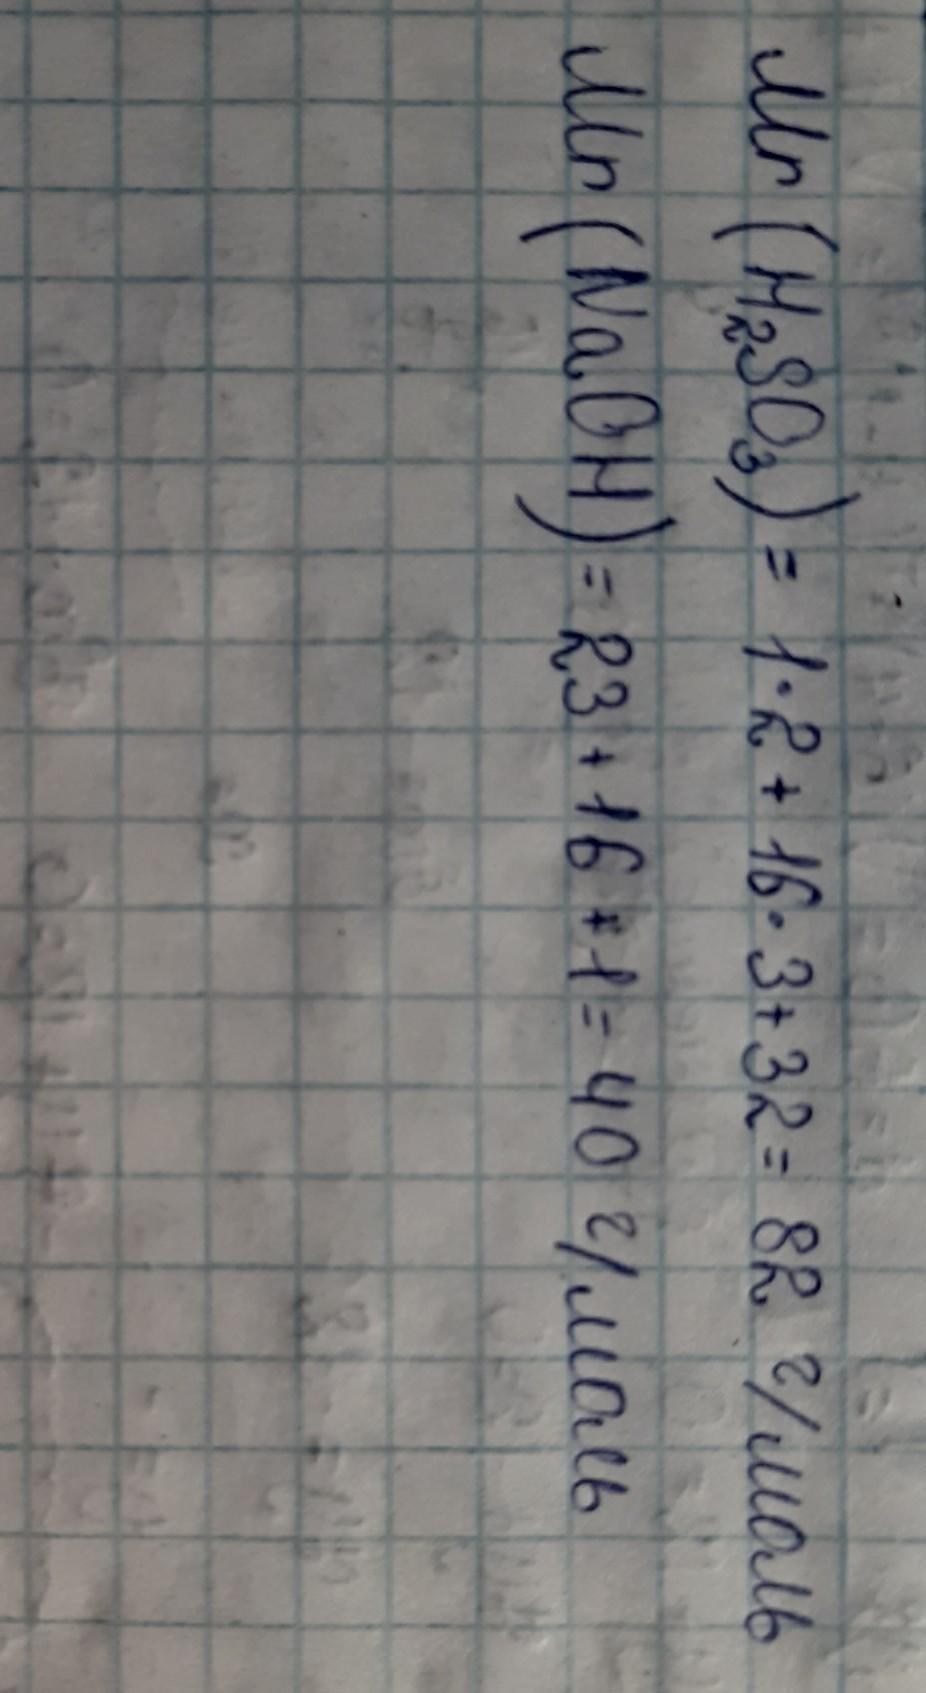 Mr (H₂SO₃) = 1·2 + 16·3 + 32 = 82 г/моль
Mr (NaOH) = 23 + 16 + 1 = 40 г/моль